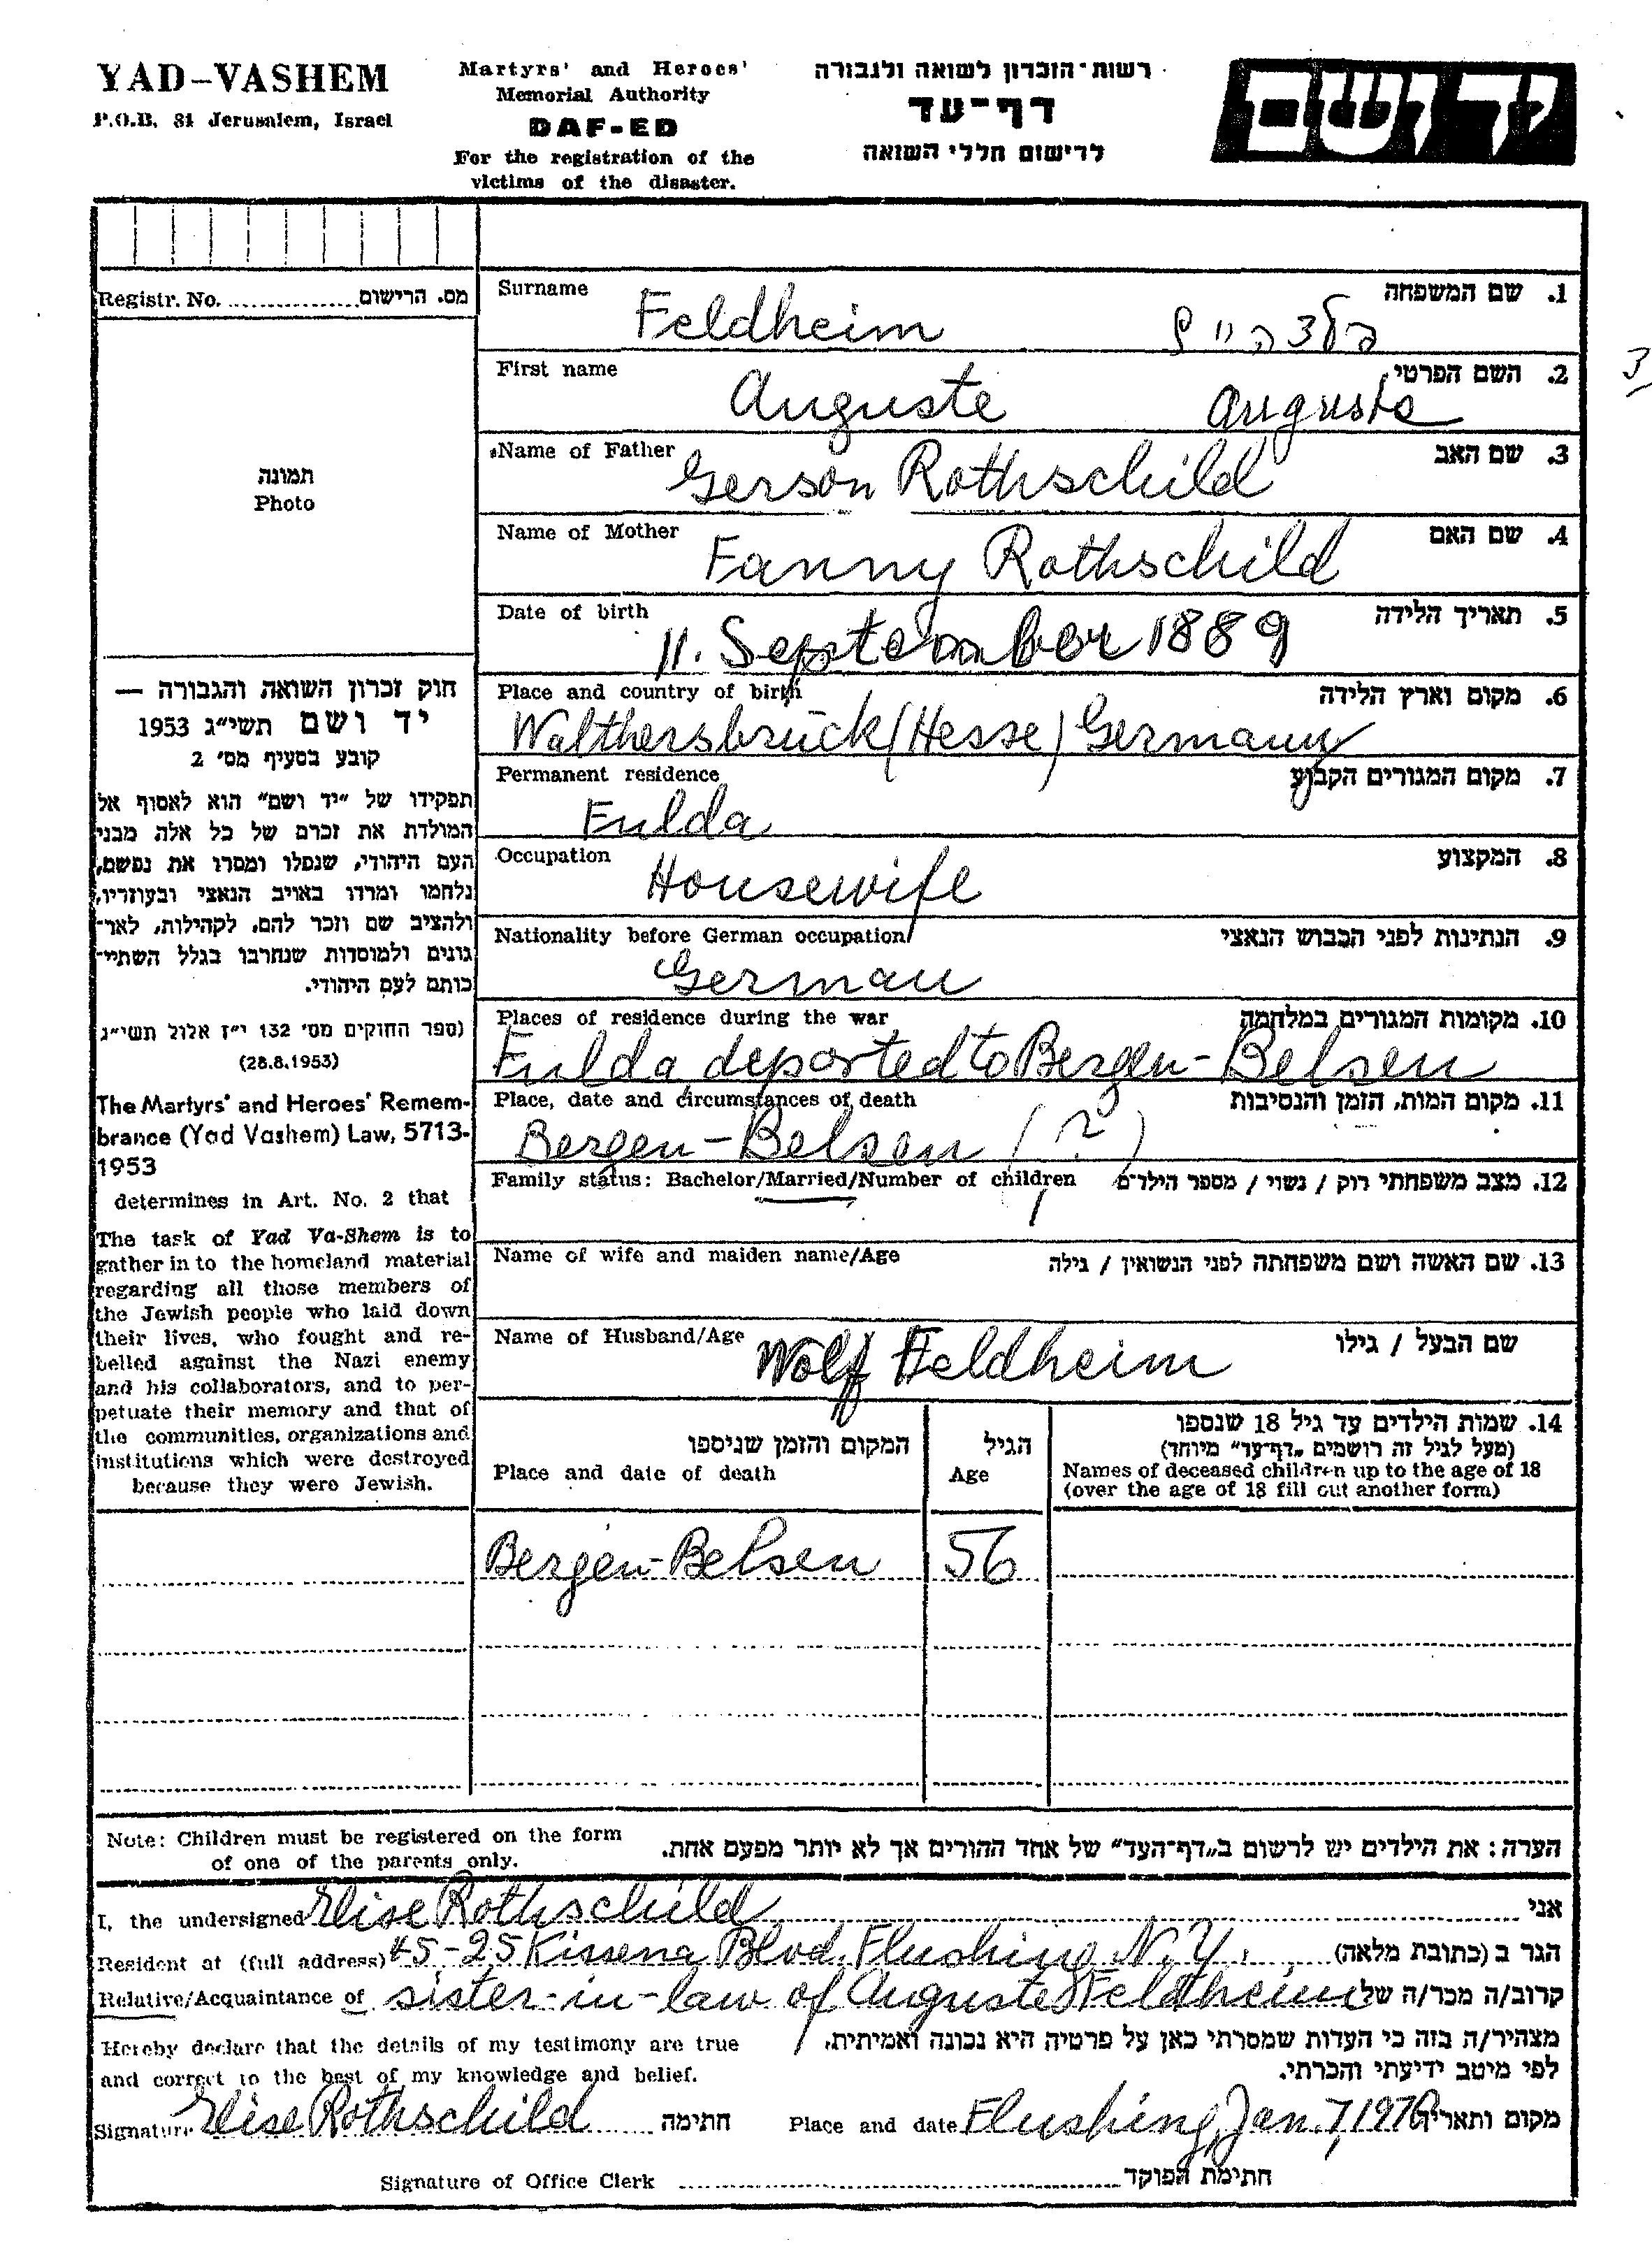 YAD-VASHEM
P.O.B. 84 Jerusalem, Israel
Martyrs' and Heroes'
Memorial Authority
DAF-ED
For the registration of the
victims of the disaster.
רשות-הזכרון לשואה ולגבורה
דף-עד
לרישום חללי השואה
ידושם
Registr. No. ................ מס. הרישום
תמונה
Photo
חוק זכרון השואה והגבורה —
יד ושם תשי״ג 1953
קובע בסעיף מס׳ 2
תפקידו של ״יד ושם״ הוא לאסוף אל
המולדת את זכרם של כל אלה מבני
העם היהודי, שנפלו ומסרו את נפשם,
נלחמו ומרדו באויב הנאצי ובעוזריו,
ולהציב שם וזכר להם, לקהילות, לאר-
גונים ולמוסדות שנחרבו בגלל השתיי-
כותם לעם היהודי.
(ספר החוקים מס׳ 132 י״ז אלול תשי״ג
(28.8.1953)
The Martyrs' and Heroes' Remem-
brance (Yad Vashem) Law, 5713-
1953
determines in Art. No. 2 that
The task of Yad Va-Shem is to
gather in to the homeland material
regarding all those members of
the Jewish people who laid down
their lives, who fought and re-
belled against the Nazi enemy
and his collaborators, and to per-
petuate their memory and that of
the communities, organizations and
institutions which were destroyed
because they were Jewish.
Surname 1. שם המשפחה
Feldheim
First name 2. השם הפרטי
Auguste Auguste
3
Name of Father 3. שם האב
Gerson Rothschild
Name of Mother 4. שם האם
Fanny Rothschild
Date of birth 5. תאריך הלידה
11. September 1889
Place and country of birth 6. מקום וארץ הלידה
Walthersbrück (Hesse) Germany
Permanent residence 7. מקום המגורים הקבוע
Fulda
Occupation 8. המקצוע
Housewife
Nationality before German occupation 9. הנתינות לפני הכבוש הנאצי
German
Places of residence during the war 10. מקומות המגורים במלחמה
Fulda, deported to Bergen-Belsen
Place, date and circumstances of death 11. מקום המות, הזמן והנסיבות
Bergen-Belsen (?)
Family status: Bachelor/Married/Number of children 12. מצב משפחתי רוק / נשוי / מספר הילדים
Name of wife and maiden name/Age 13. שם האשה ושם משפחתה לפני הנשואין / גילה
Name of Husband/Age שם הבעל / גילו
Wolf Feldheim
המקום והזמן שניספו
Place and date of death
הגיל
Age
14. שמות הילדים עד גיל 18 שנספו
(מעל לגיל זה רושמים ״דף-עד״ מיוחד)
Names of deceased children up to the age of 18
(over the age of 18 fill out another form)
Bergen-Belsen 56
Note: Children must be registered on the form
of one of the parents only.
הערה: את הילדים יש לרשום ב״דף-העד״ של אחד ההורים אך לא יותר מפעם אחת.
I, the undersigned Elise Rothschild אני
Resident at (full address) 45-25 Kissena Blvd. Flushing N.Y. הגר ב (כתובת מלאה)
Relative/Acquaintance of sister-in-law of Auguste Feldheim קרוב/ה מכר/ה של
Hereby declare that the details of my testimony are true
and correct to the best of my knowledge and belief.
מצהיר/ה בזה כי העדות שמסרתי כאן על פרטיה היא נכונה ואמיתית,
לפי מיטב ידיעתי והכרתי.
Signature Elise Rothschild חתימה Place and date Flushing, Jan. 7, מקום ותאריך
Signature of Office Clerk חתימת הפוקד